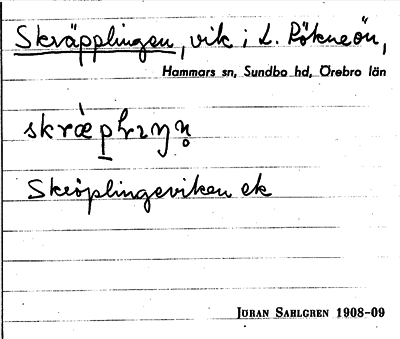 Skräpplingen, vik i L. Rökneön,
Hammars sn, Sundbo hd, Örebro län
Skröplingeviken ek
Jöran Sahlgren 1908-09